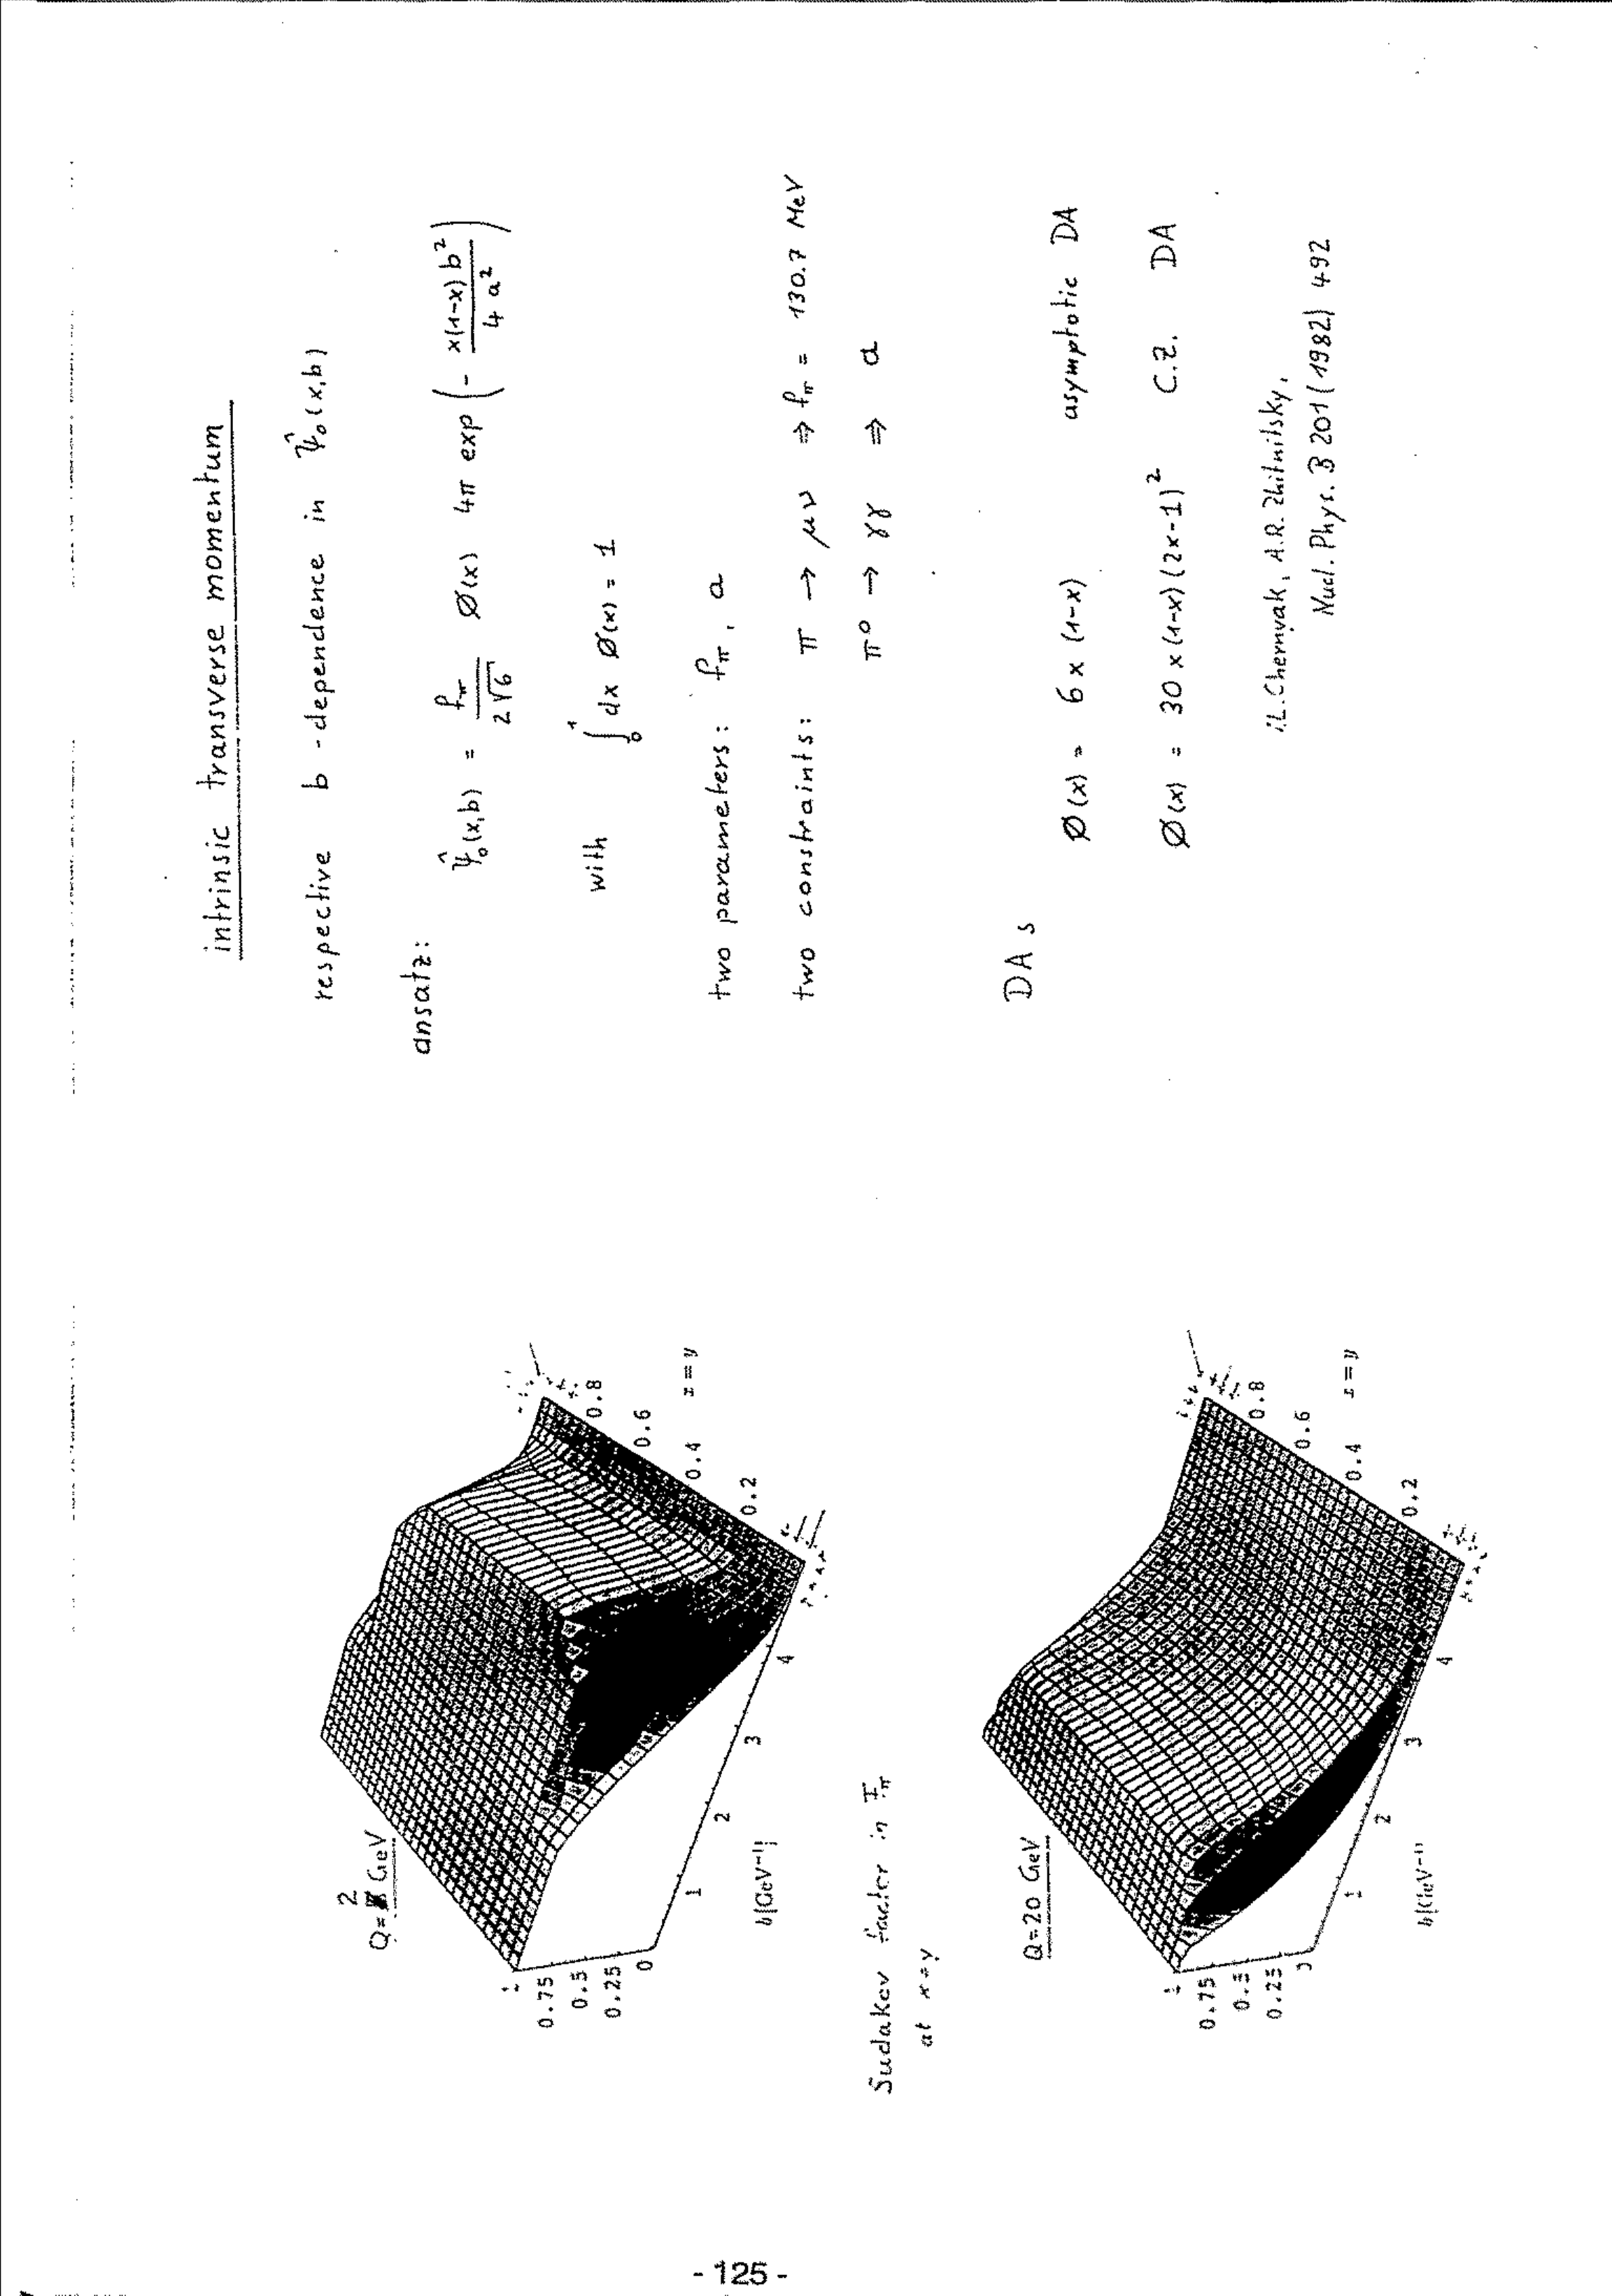 Q=2 GeV
1
0.75
0.5
0.25
0
1
2
3
4
b[GeV⁻¹]
0.2
0.4
0.6
0.8
x=y
Sudakov factor in F_π
at x=y
Q=20 GeV
1
0.75
0.5
0.25
0
1
2
3
4
b[GeV⁻¹]
0.2
0.4
0.6
0.8
x=y
intrinsic transverse momentum
respective b-dependence in Ψ̂₀(x,b)
ansatz:
Ψ̂₀(x,b) = f_π/(2√6) Ø(x) 4π exp(- x(1-x)b²/(4a²))
with ∫₀¹ dx Ø(x) = 1
two parameters: f_π, a
two constraints: π → μν ⇒ f_π = 130.7 MeV
π⁰ → γγ ⇒ a
DAs
Ø(x) = 6x(1-x) asymptotic DA
Ø(x) = 30x(1-x)(2x-1)² C.Z. DA
L. Chernyak, A.R. Zhitnitsky,
Nucl. Phys. B 201 (1982) 492
- 125 -